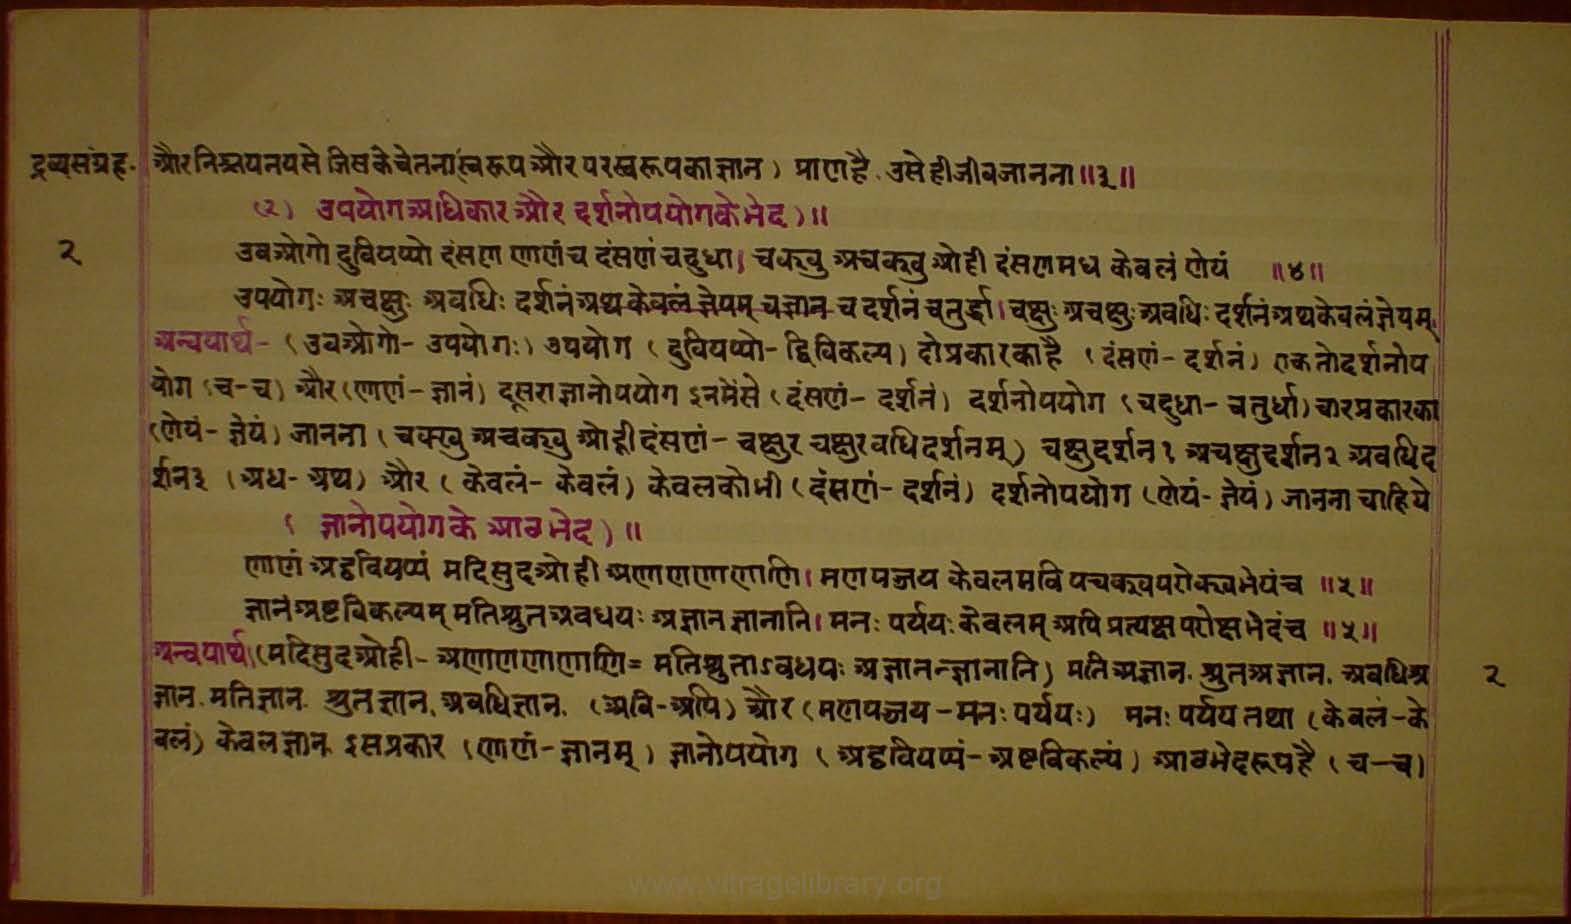 द्रव्यसंग्रह. और निश्चयनयसे जिसके चेतना(स्वरूप और परस्वरूपका ज्ञान) प्राण है. उसे ही जीव जानना॥३॥
(२) उपयोग अधिकार और दर्शनोपयोगके भेद)॥
२
उवओगो दुवियप्पो दंसण णाणं च दंसणं चदुधा। चक्खु अचक्खु ओही दंसणमध केवलं णेयं ॥४॥
उपयोगः अचक्षुः अवधिः दर्शनं अथ केवलं ज्ञेयम् च ज्ञान च दर्शनं चतुर्द्धा। चक्षुः अचक्षुः अवधिः दर्शनं अथ केवलं ज्ञेयम्.
अन्वयार्थ- (उवओगो- उपयोगः) उपयोग (दुवियप्पो- द्विविकल्प) दो प्रकारका है (दंसणं- दर्शनं) एक तो दर्शनोप
योग (च-च) और (णाणं- ज्ञानं) दूसरा ज्ञानोपयोग इनमेंसे (दंसणं- दर्शनं) दर्शनोपयोग (चदुधा- चतुर्धा) चार प्रकारका
(णेयं- ज्ञेयं) जानना (चक्खु अचक्खु ओही दंसणं- चक्षुर चक्षुरवधिदर्शनम्) चक्षुदर्शन १ अचक्षुदर्शन २ अवधिद
र्शन ३ (अध- अथ) और (केवलं- केवलं) केवलको भी (दंसणं- दर्शनं) दर्शनोपयोग (णेयं- ज्ञेयं) जानना चाहिये
( ज्ञानोपयोगके आठ भेद)॥
णाणं अट्ठवियप्पं मदिसुदओही अणाणणाणाणि। मणपज्जय केवलमवि पचक्खपरोक्खभेयं च ॥५॥
ज्ञानं अष्टविकल्पम् मतिश्रुतअवधयः अज्ञान ज्ञानानि। मनः पर्ययः केवलम् अपि प्रत्यक्ष परोक्ष भेदं च ॥५॥
अन्वयार्थ।(मदिसुदओही- अणाणणाणाणि= मतिश्रुताऽवधयः अज्ञानन्ज्ञानानि) मतिअज्ञान. श्रुतअज्ञान. अवधिअ
२
ज्ञान. मतिज्ञान. श्रुतज्ञान. अवधिज्ञान. (अवि-अपि) और (मणपज्जय-मनः पर्ययः) मनः पर्यय तथा (केवलं-के
वलं) केवलज्ञान इसप्रकार (णाणं- ज्ञानम्) ज्ञानोपयोग (अट्ठवियप्पं- अष्टविकल्पं) आठभेदरूप है (च-च)
www.vitragelibrary.org